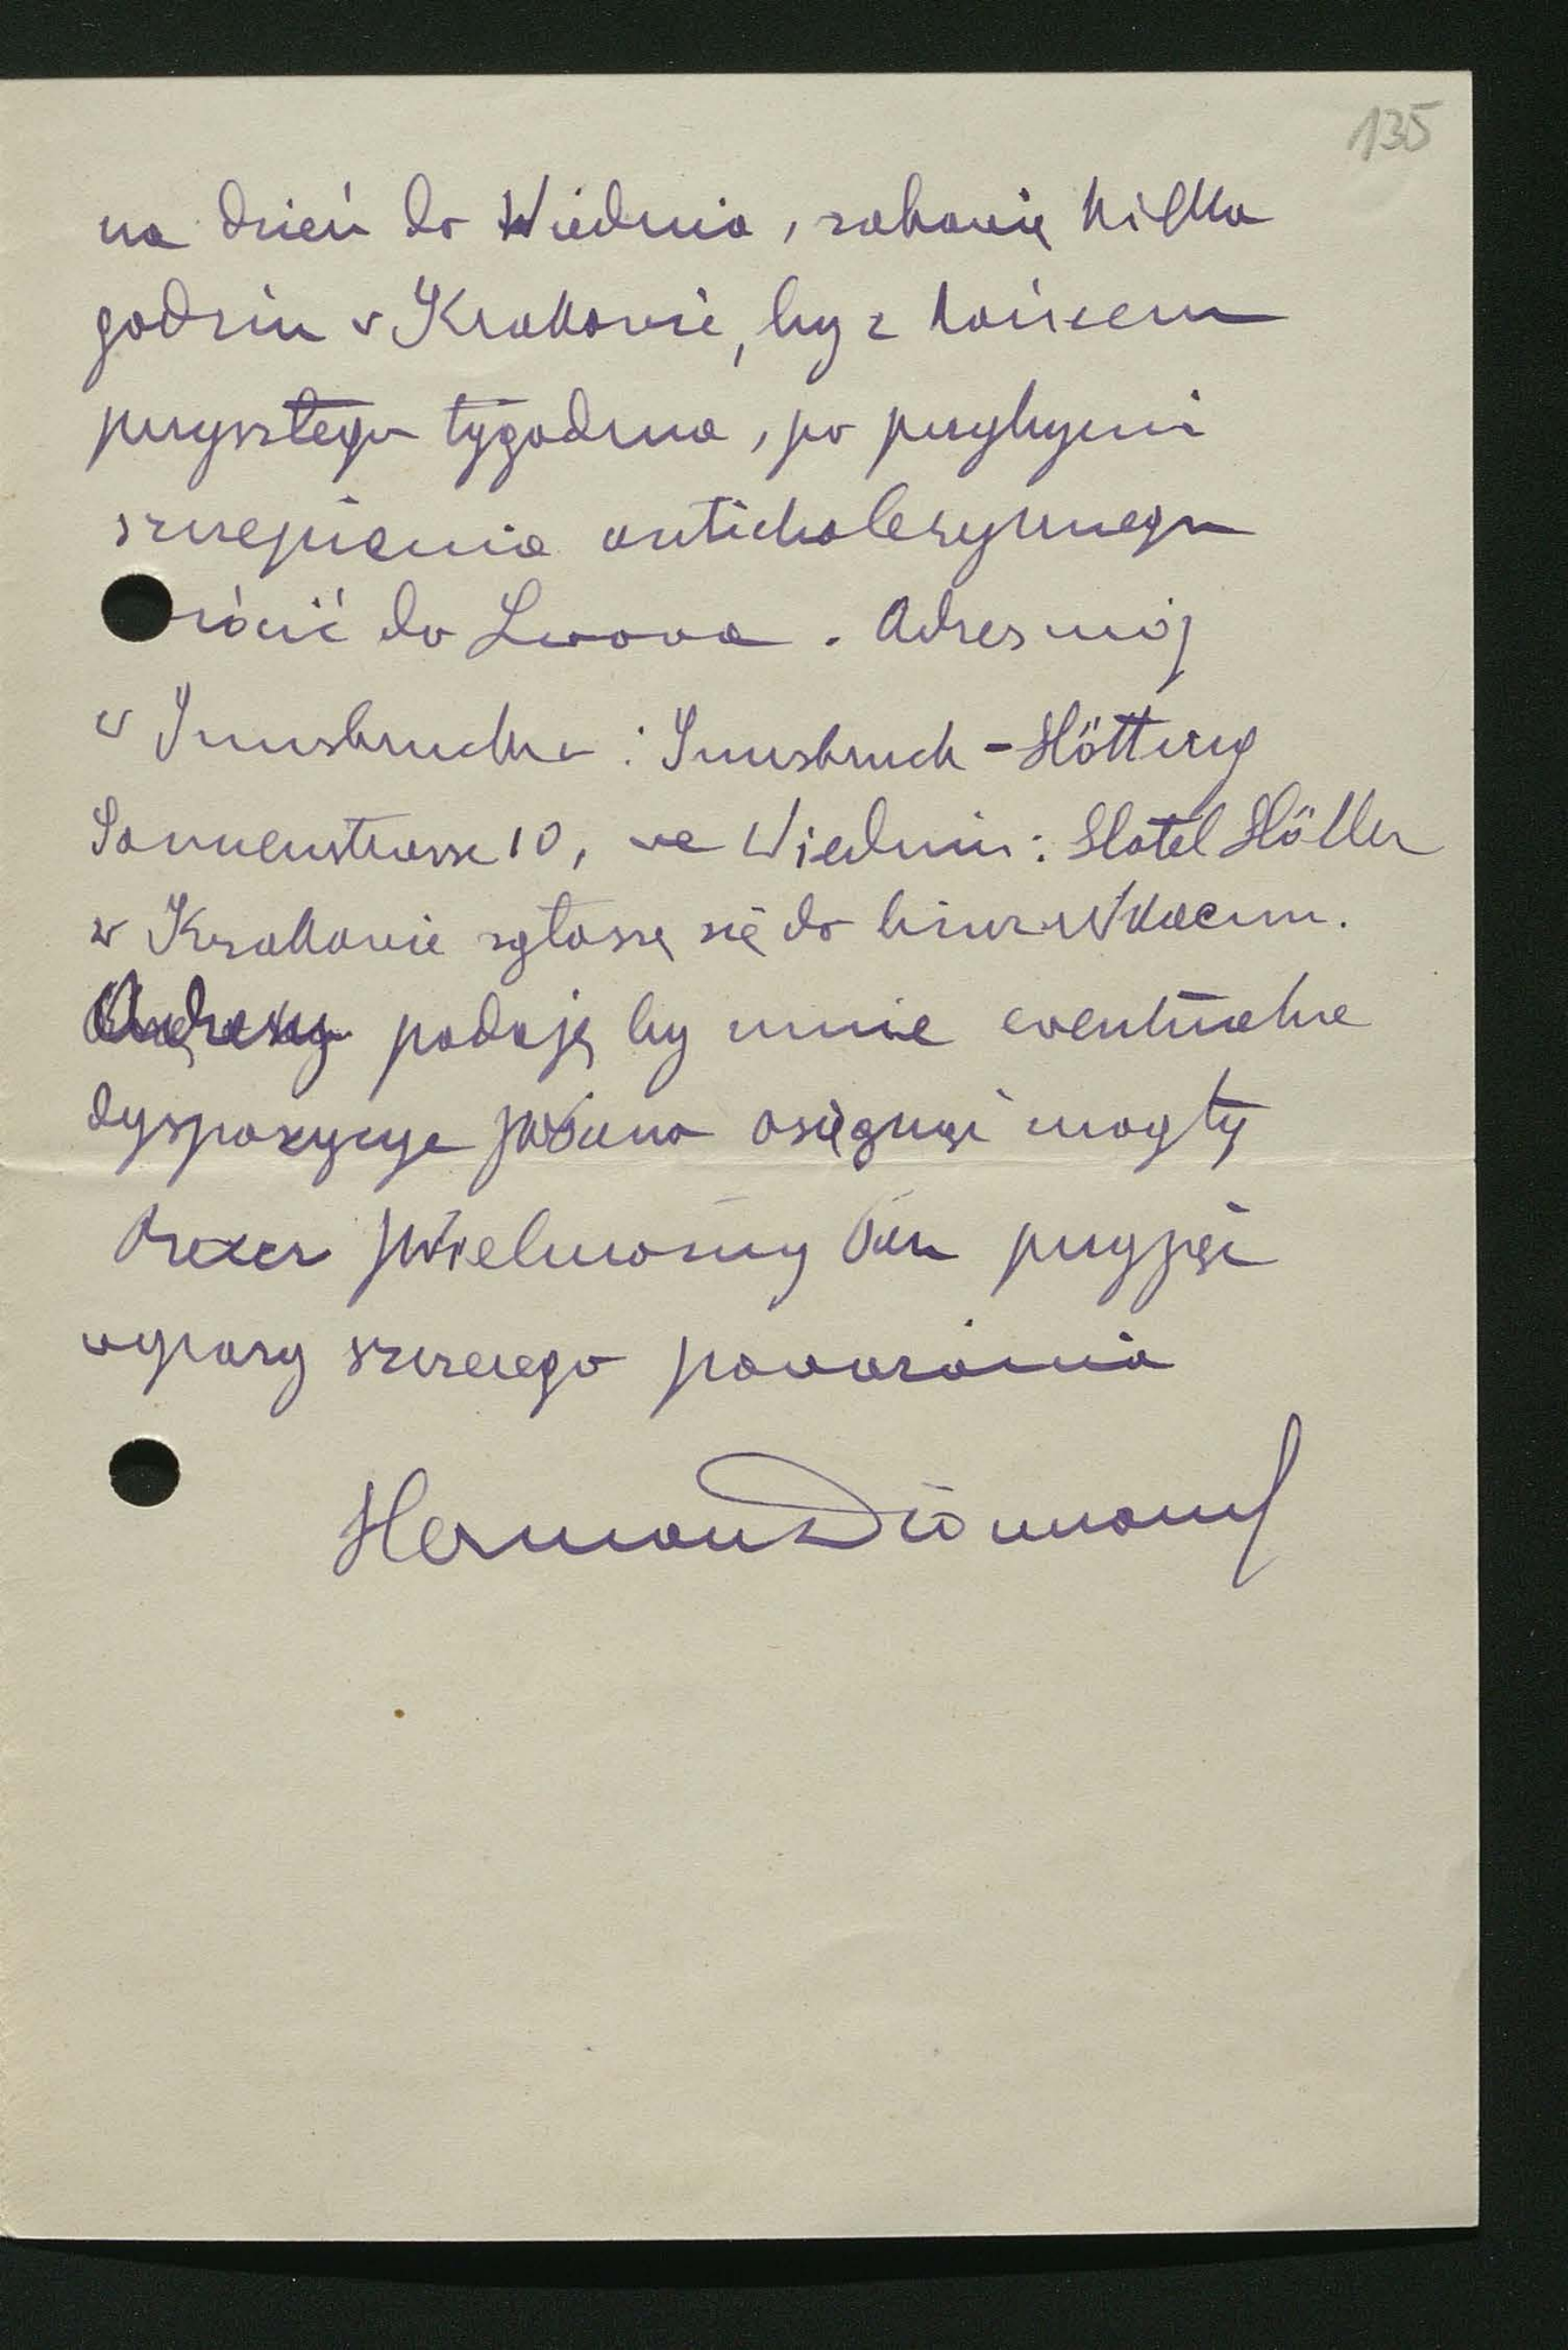 135
na dzień do Wiednia, zabawię kilka
godzin w Krakowie, by z końcem
przyszłego tygodnia, po przebyciu
szczepienia anticholerycznego
rócić do Lwowa. Adres mój
w Innsbrucku: Innsbruck-Hötting
Sonnenstrasse 10, we Wiedniu: Hotel Höller
w Krakowie zgłoszę się do biura Nkaemu.
Adresy podaję by mnie eventualne
dyspozycye JWPana osięgnąć mogły
Prezes JWielmożny Pan przyjąć
wyrazy szczerego poważania
Herman Diamand